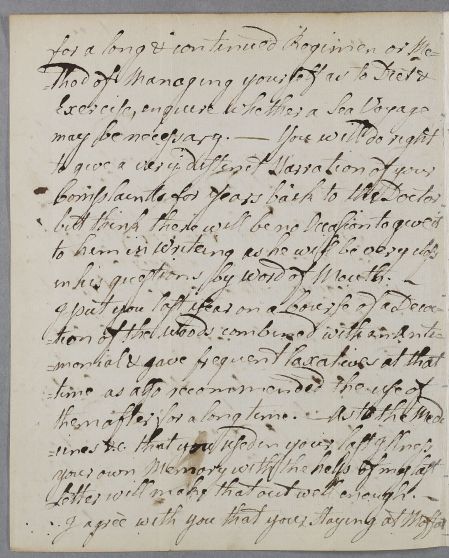 for a long & continued Regimen or Me-
-thod of Managing yourself as to Diet &
Exercise, enquire whether a Sea Voyage
may be necessary. — You will do right
to give a very distinct Narration of your
Complaints for years back to the Doctor
but think there will be no Occasion to give it
to him in Writing as he will be very
in his questions by word of Mouth. —
I put you last year on a Course of a Decoc-
-tion of the Woods combined with an Anti-
-monial & gave frequent laxatives at that
time as also recommended the use of
them after for a long time. — As to the Medi-
-cines &c that you used in your last Illness
your own Memory with the help of my last
Letter will make that out well enough. —
I agree with you that your Staying at